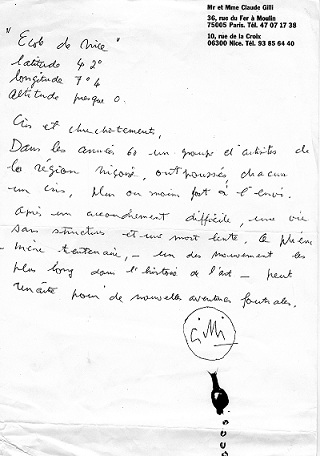 Mr et Mme Claude Gilli
36, rue du Fer à Moulin
75005 Paris. Tél. 47 07 17 38
10, rue de la Croix
06300 Nice. Tél. 93 85 64 40
" Ecole de Nice "
latitude 42°
longitude 7°4
altitude presque 0.
Cris et chuchotement,
Dans les années 60 un groupe d'artistes de
la région niçoise, ont poussés chacun
un cris, plus ou moins fort à l'envi.
Après un accouchement difficile, une vie
sans structures et une mort lente, le phéno
- mène trentenaire, - un des mouvement les
plus long dans l'histoire de l'art - peut
renaître pour de nouvelles aventures
Gilli